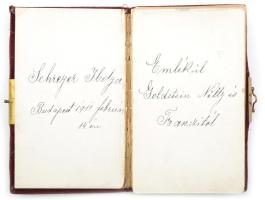 Schreyer Ibolya
Budapest 1911 február
14 én
Emlékül
Goldstein Nelly és
Frankitól